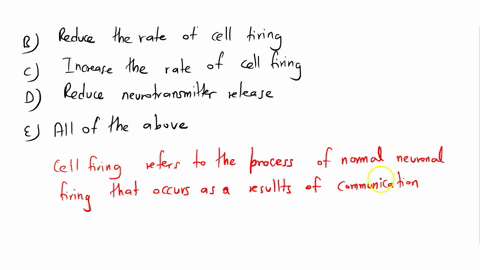 B) Reduce the rate of cell firing
C) Increase the rate of cell firing
D) Reduce neurotransmitter release
E) All of the above
Cell firing refers to the process of normal neuronal
firing that occurs as a resullts of communication